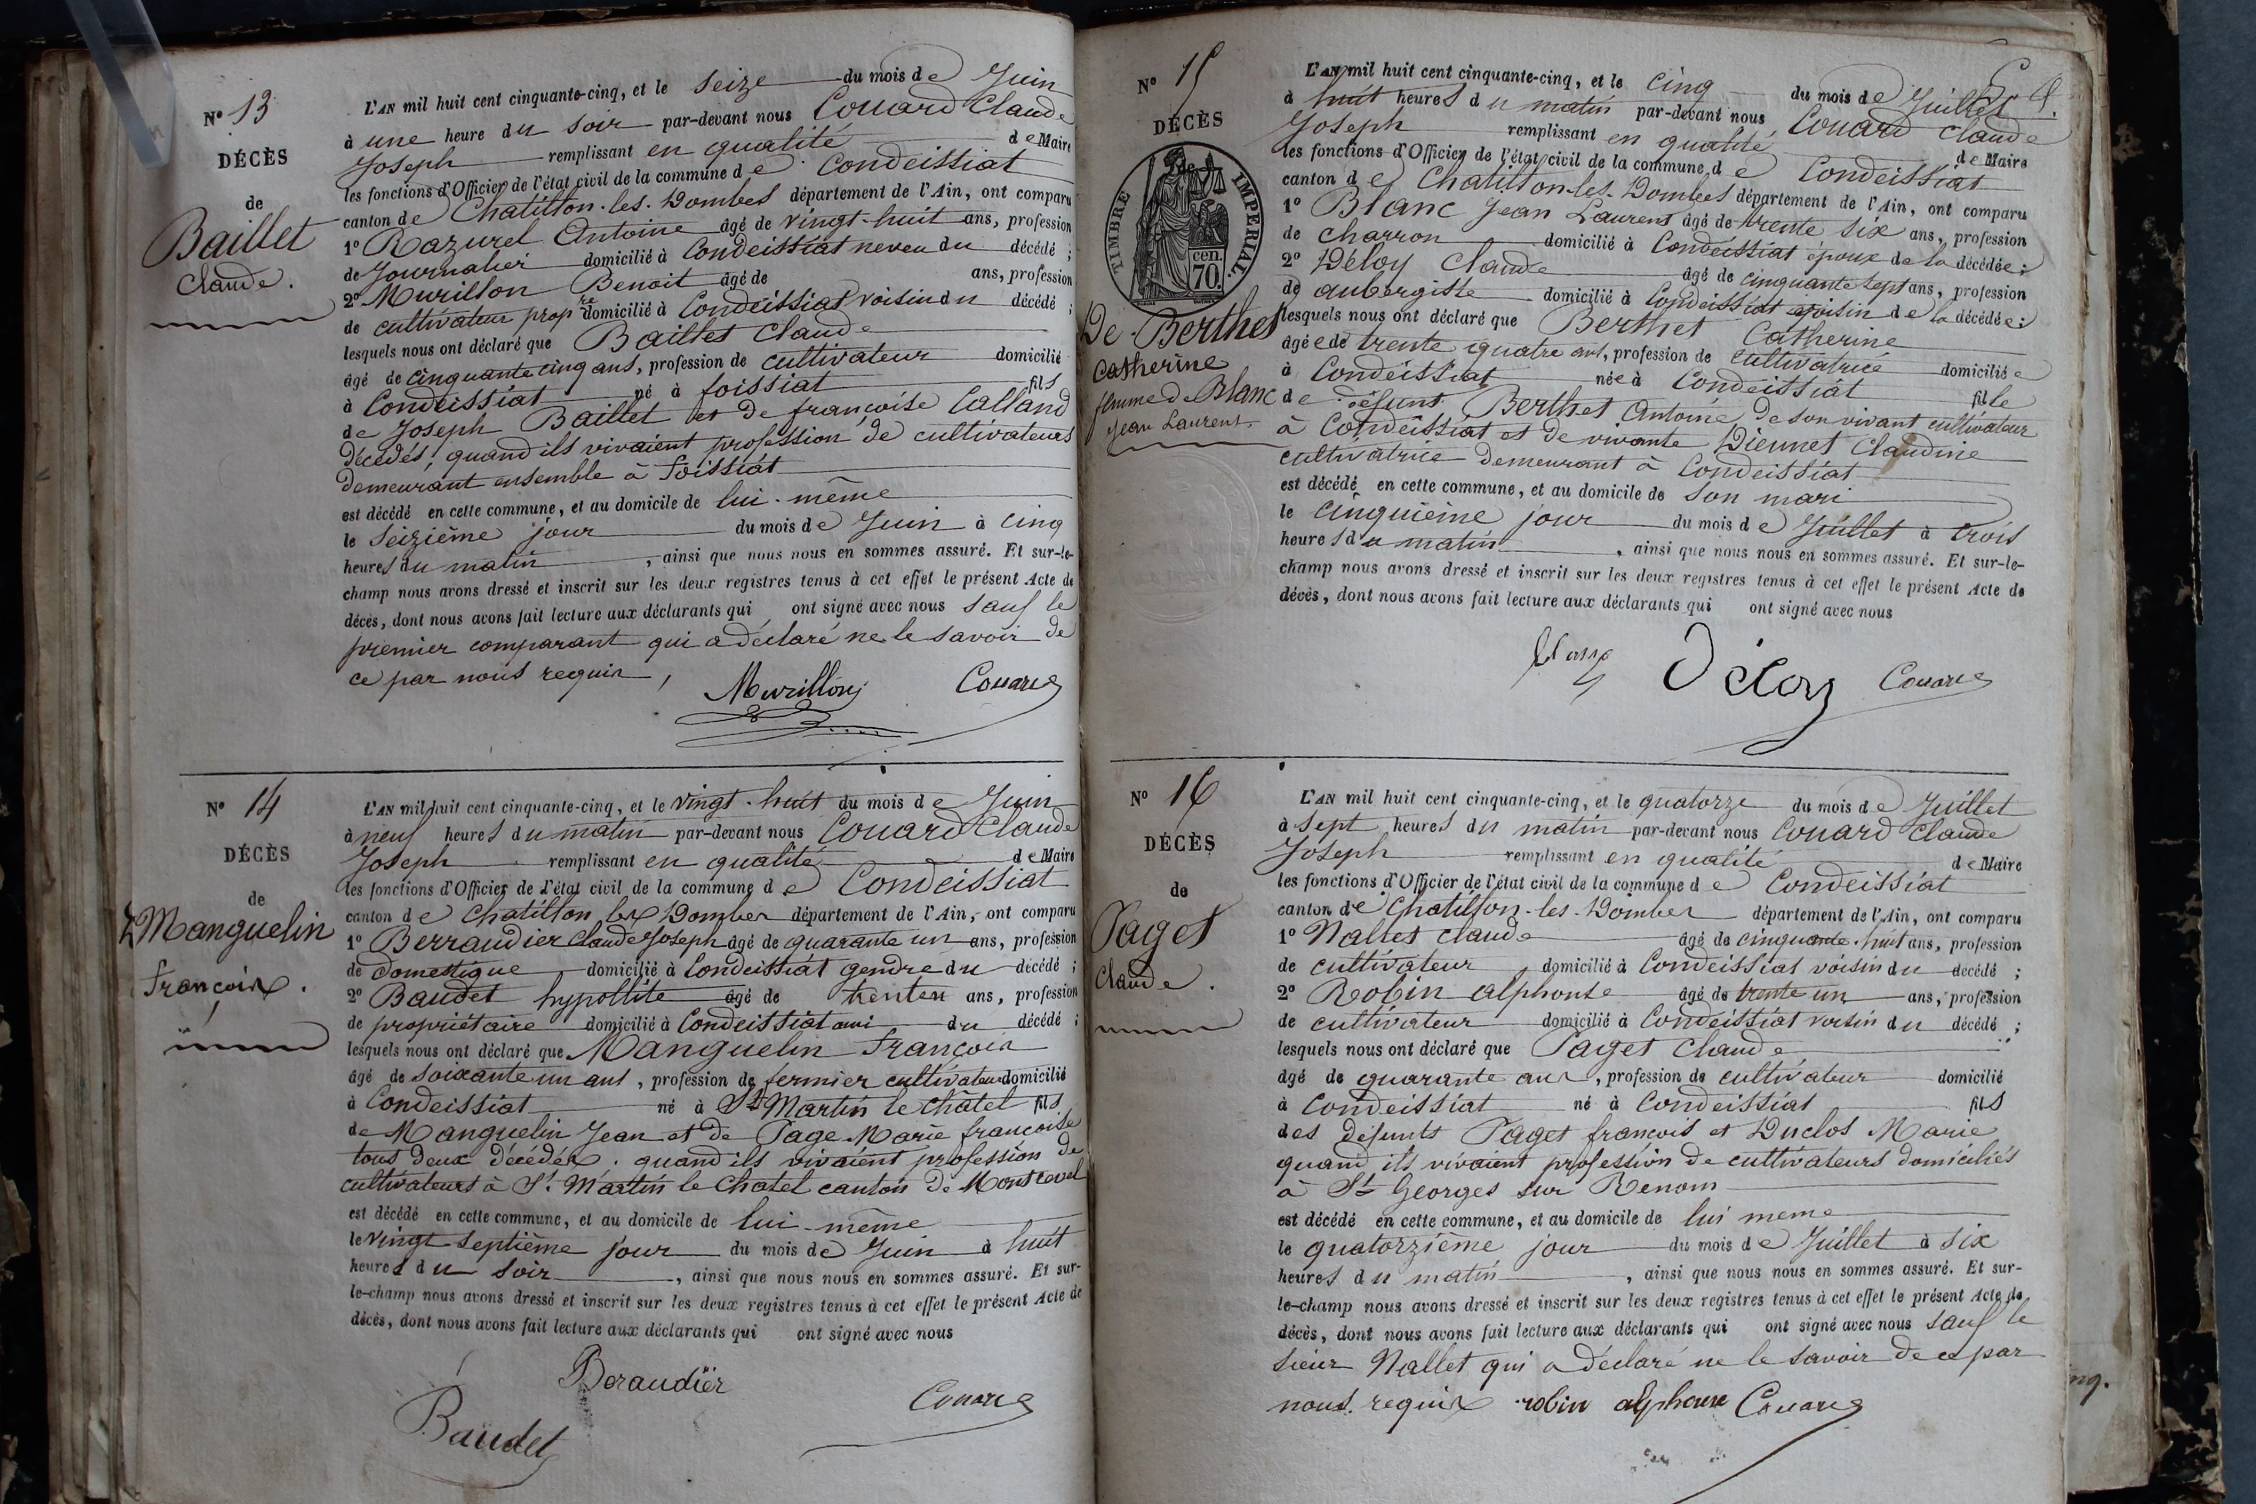 N° 13
DÉCÈS
de
Baillet
Claude.
L'AN mil huit cent cinquante-cinq, et le seize du mois de Juin
à une heure du soir par-devant nous Couard Claude
Joseph remplissant en qualité de Maire
les fonctions d'Officier de l'état civil de la commune de Condeissiat
canton de Chatillon-les-Dombes département de l'Ain, ont comparu
1° Razurel Antoine âgé de vingt-huit ans, profession
de Journalier domicilié à Condeissiat neveu du décédé ;
2° Murillon Benoit âgé de ans, profession
de cultivateur prop.re domicilié à Condeissiat voisin du décédé ;
lesquels nous ont déclaré que Baillet Claude
âgé de cinquante cinq ans, profession de cultivateur domicilié
à Condeissiat né à foissiat fils
de Joseph Baillet et de françoise Calland
décédés, quand ils vivaient profession de cultivateurs
demeurant ensemble à foissiat
est décédé en cette commune, et au domicile de lui-même
le seizième jour du mois de Juin à cinq
heures du matin, ainsi que nous nous en sommes assuré. Et sur-le-
champ nous avons dressé et inscrit sur les deux registres tenus à cet effet le présent Acte de
décès, dont nous avons fait lecture aux déclarants qui ont signé avec nous sauf le
premier comparant qui a déclaré ne le savoir de
ce par nous requis,
Murillon Couard
N° 14
DÉCÈS
de
Manguelin
françois.
L'AN mil huit cent cinquante-cinq, et le vingt-huit du mois de Juin
à neuf heures du matin par-devant nous Couard Claude
Joseph remplissant en qualité de Maire
les fonctions d'Officier de l'état civil de la commune de Condeissiat
canton de Chatillon les Dombes département de l'Ain, ont comparu
1° Berraudier Claude Joseph âgé de quarante un ans, profession
de domestique domicilié à Condeissiat gendre du décédé ;
2° Baudet hypollite âgé de trente ans, profession
de propriétaire domicilié à Condeissiat ami du décédé ;
lesquels nous ont déclaré que Manguelin François
âgé de soixante un ans, profession de fermier cultivateur domicilié
à Condeissiat né à St Martin le châtel fils
de Manguelin Jean et de Page Marie françoise
tous deux décédés. quand ils vivaient profession de
cultivateurs à St. Martin le Chatel canton de Montrevel
est décédé en cette commune, et au domicile de lui-même
le vingt septième jour du mois de Juin à huit
heures du soir, ainsi que nous nous en sommes assuré. Et sur-
le-champ nous avons dressé et inscrit sur les deux registres tenus à cet effet le présent Acte de
décès, dont nous avons fait lecture aux déclarants qui ont signé avec nous
Beraudïer
Baudet Couard
N° 15
DÉCÈS
de
TIMBRE IMPÉRIAL.
70 cen.
De Berthet
Catherine
femme de Blanc
Jean Laurent.
L'AN mil huit cent cinquante-cinq, et le cinq du mois de Juillet
à huit heures du matin par-devant nous Couard Claude
Joseph remplissant en qualité de Maire
les fonctions d'Officier de l'état civil de la commune de Condeissiat
canton de Chatillon-les-Dombes département de l'Ain, ont comparu
1° Blanc Jean Laurent âgé de trente six ans, profession
de charron domicilié à Condeissiat époux de la décédée ;
2° Déloy Claude âgé de cinquante sept ans, profession
de aubergiste domicilié à Condeissiat voisin de la décédée ;
lesquels nous ont déclaré que Berthet Catherine
âgée de trente quatre ans, profession de cultivatrice domiciliée
à Condeissiat née à Condeissiat fille
de défunt Berthet Antoine de son vivant cultivateur
à Condeissiat et de vivante Diennet Claudine
cultivatrice demeurant à Condeissiat
est décédé en cette commune, et au domicile de son mari
le cinquième jour du mois de Juillet à trois
heures du matin, ainsi que nous nous en sommes assuré. Et sur-le-
champ nous avons dressé et inscrit sur les deux registres tenus à cet effet le présent Acte de
décès, dont nous avons fait lecture aux déclarants qui ont signé avec nous
Blanc Déloy Couard
N° 16
DÉCÈS
de
Paget
Claude.
L'AN mil huit cent cinquante-cinq, et le quatorze du mois de Juillet
à sept heures du matin par-devant nous Couard Claude
Joseph remplissant en qualité de Maire
les fonctions d'Officier de l'état civil de la commune de Condeissiat
canton de Chatillon-les-Dombes département de l'Ain, ont comparu
1° Nallet Claude âgé de cinquante-huit ans, profession
de cultivateur domicilié à Condeissiat voisin du décédé ;
2° Robin alphonse âgé de trente un ans, profession
de cultivateur domicilié à Condeissiat voisin du décédé ;
lesquels nous ont déclaré que Paget Claude
âgé de quarante ans, profession de cultivateur domicilié
à Condeissiat né à Condeissiat fils
des défunts Paget françois et Duclos Marie
quand ils vivaient profession de cultivateurs domiciliés
à St Georges sur Renom
est décédé en cette commune, et au domicile de lui meme
le quatorzième jour du mois de Juillet à six
heures du matin, ainsi que nous nous en sommes assuré. Et sur-
le-champ nous avons dressé et inscrit sur les deux registres tenus à cet effet le présent Acte de
décès, dont nous avons fait lecture aux déclarants qui ont signé avec nous sauf le
sieur Nallet qui a déclaré ne le savoir de ce par
nous requis robin alphonse Couard